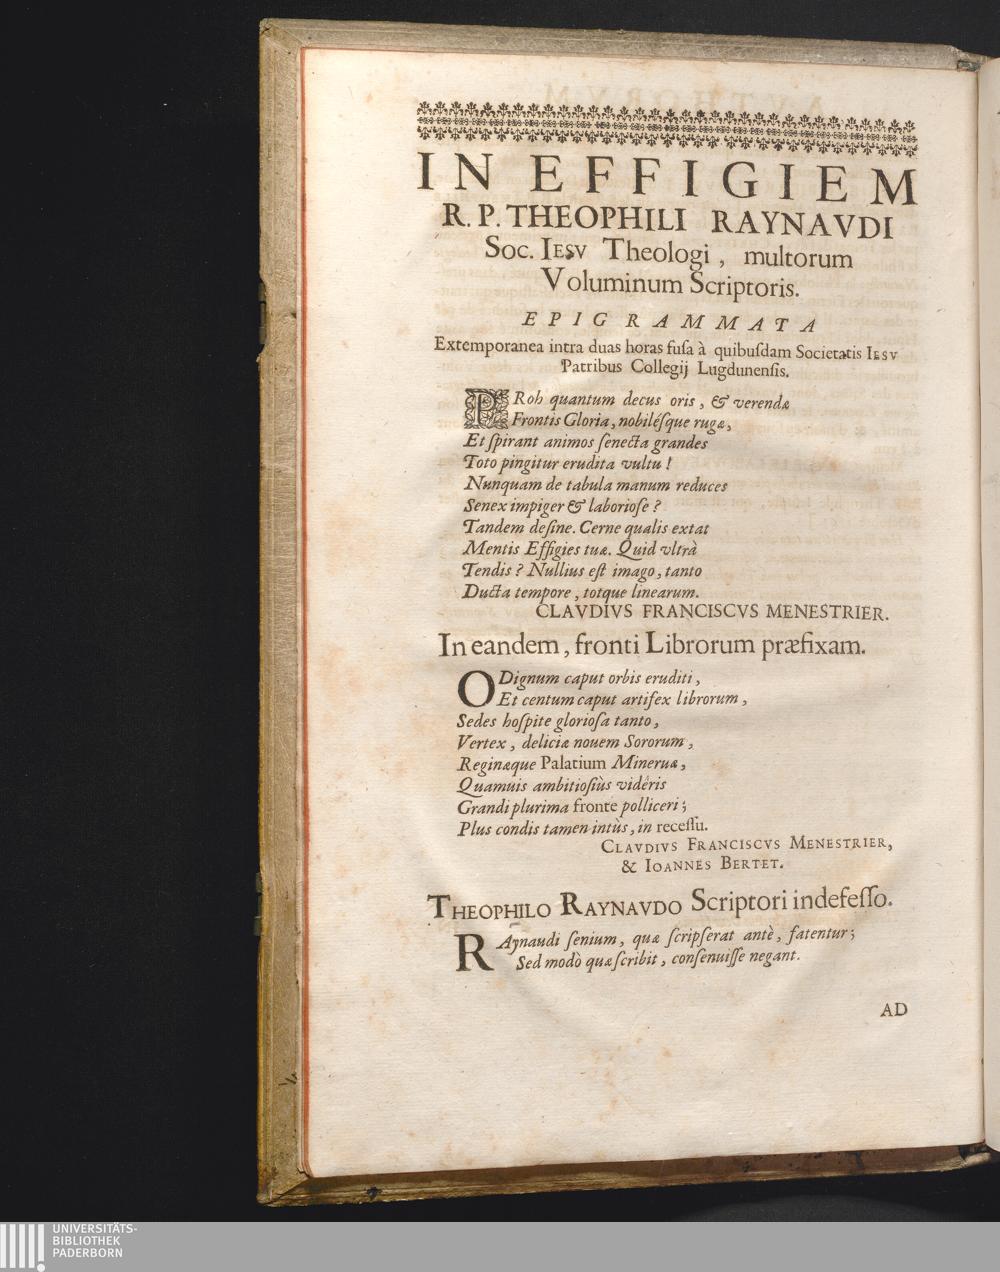 IN EFFIGIEM
R. P. THEOPHILI RAYNAVDI
Soc. IESV Theologi, multorum
Voluminum Scriptoris.
EPIGRAMMATA
Extemporanea intra duas horas fuſa à quibuſdam Societatis IESV
Patribus Collegij Lugdunenſis.
PRoh quantum decus oris, & verendæ
Frontis Gloria, nobiléſque rugæ,
Et ſpirant animos ſenecta grandes
Toto pingitur erudita vultu!
Nunquam de tabula manum reduces
Senex impiger & laborioſe?
Tandem deſine. Cerne qualis extat
Mentis Effigies tuæ. Quid vltrà
Tendis? Nullius eſt imago, tanto
Ducta tempore, totque linearum.
CLAVDIVS FRANCISCVS MENESTRIER.
In eandem, fronti Librorum præfixam.
O Dignum caput orbis eruditi,
Et centum caput artifex librorum,
Sedes hoſpite glorioſa tanto,
Vertex, deliciæ nouem Sororum,
Reginæque Palatium Mineruæ,
Quamuis ambitioſiùs vidêris
Grandi plurima fronte polliceri;
Plus condis tamen intùs, in receſſu.
CLAVDIVS FRANCISCVS MENESTRIER,
& IOANNES BERTET.
THEOPHILO RAYNAVDO Scriptori indefeſſo.
RAynaudi ſenium, quæ ſcripſerat antè, fatentur;
Sed modò quæ ſcribit, conſenuiſſe negant.
AD
UNIVERSITÄTS-
BIBLIOTHEK
PADERBORN